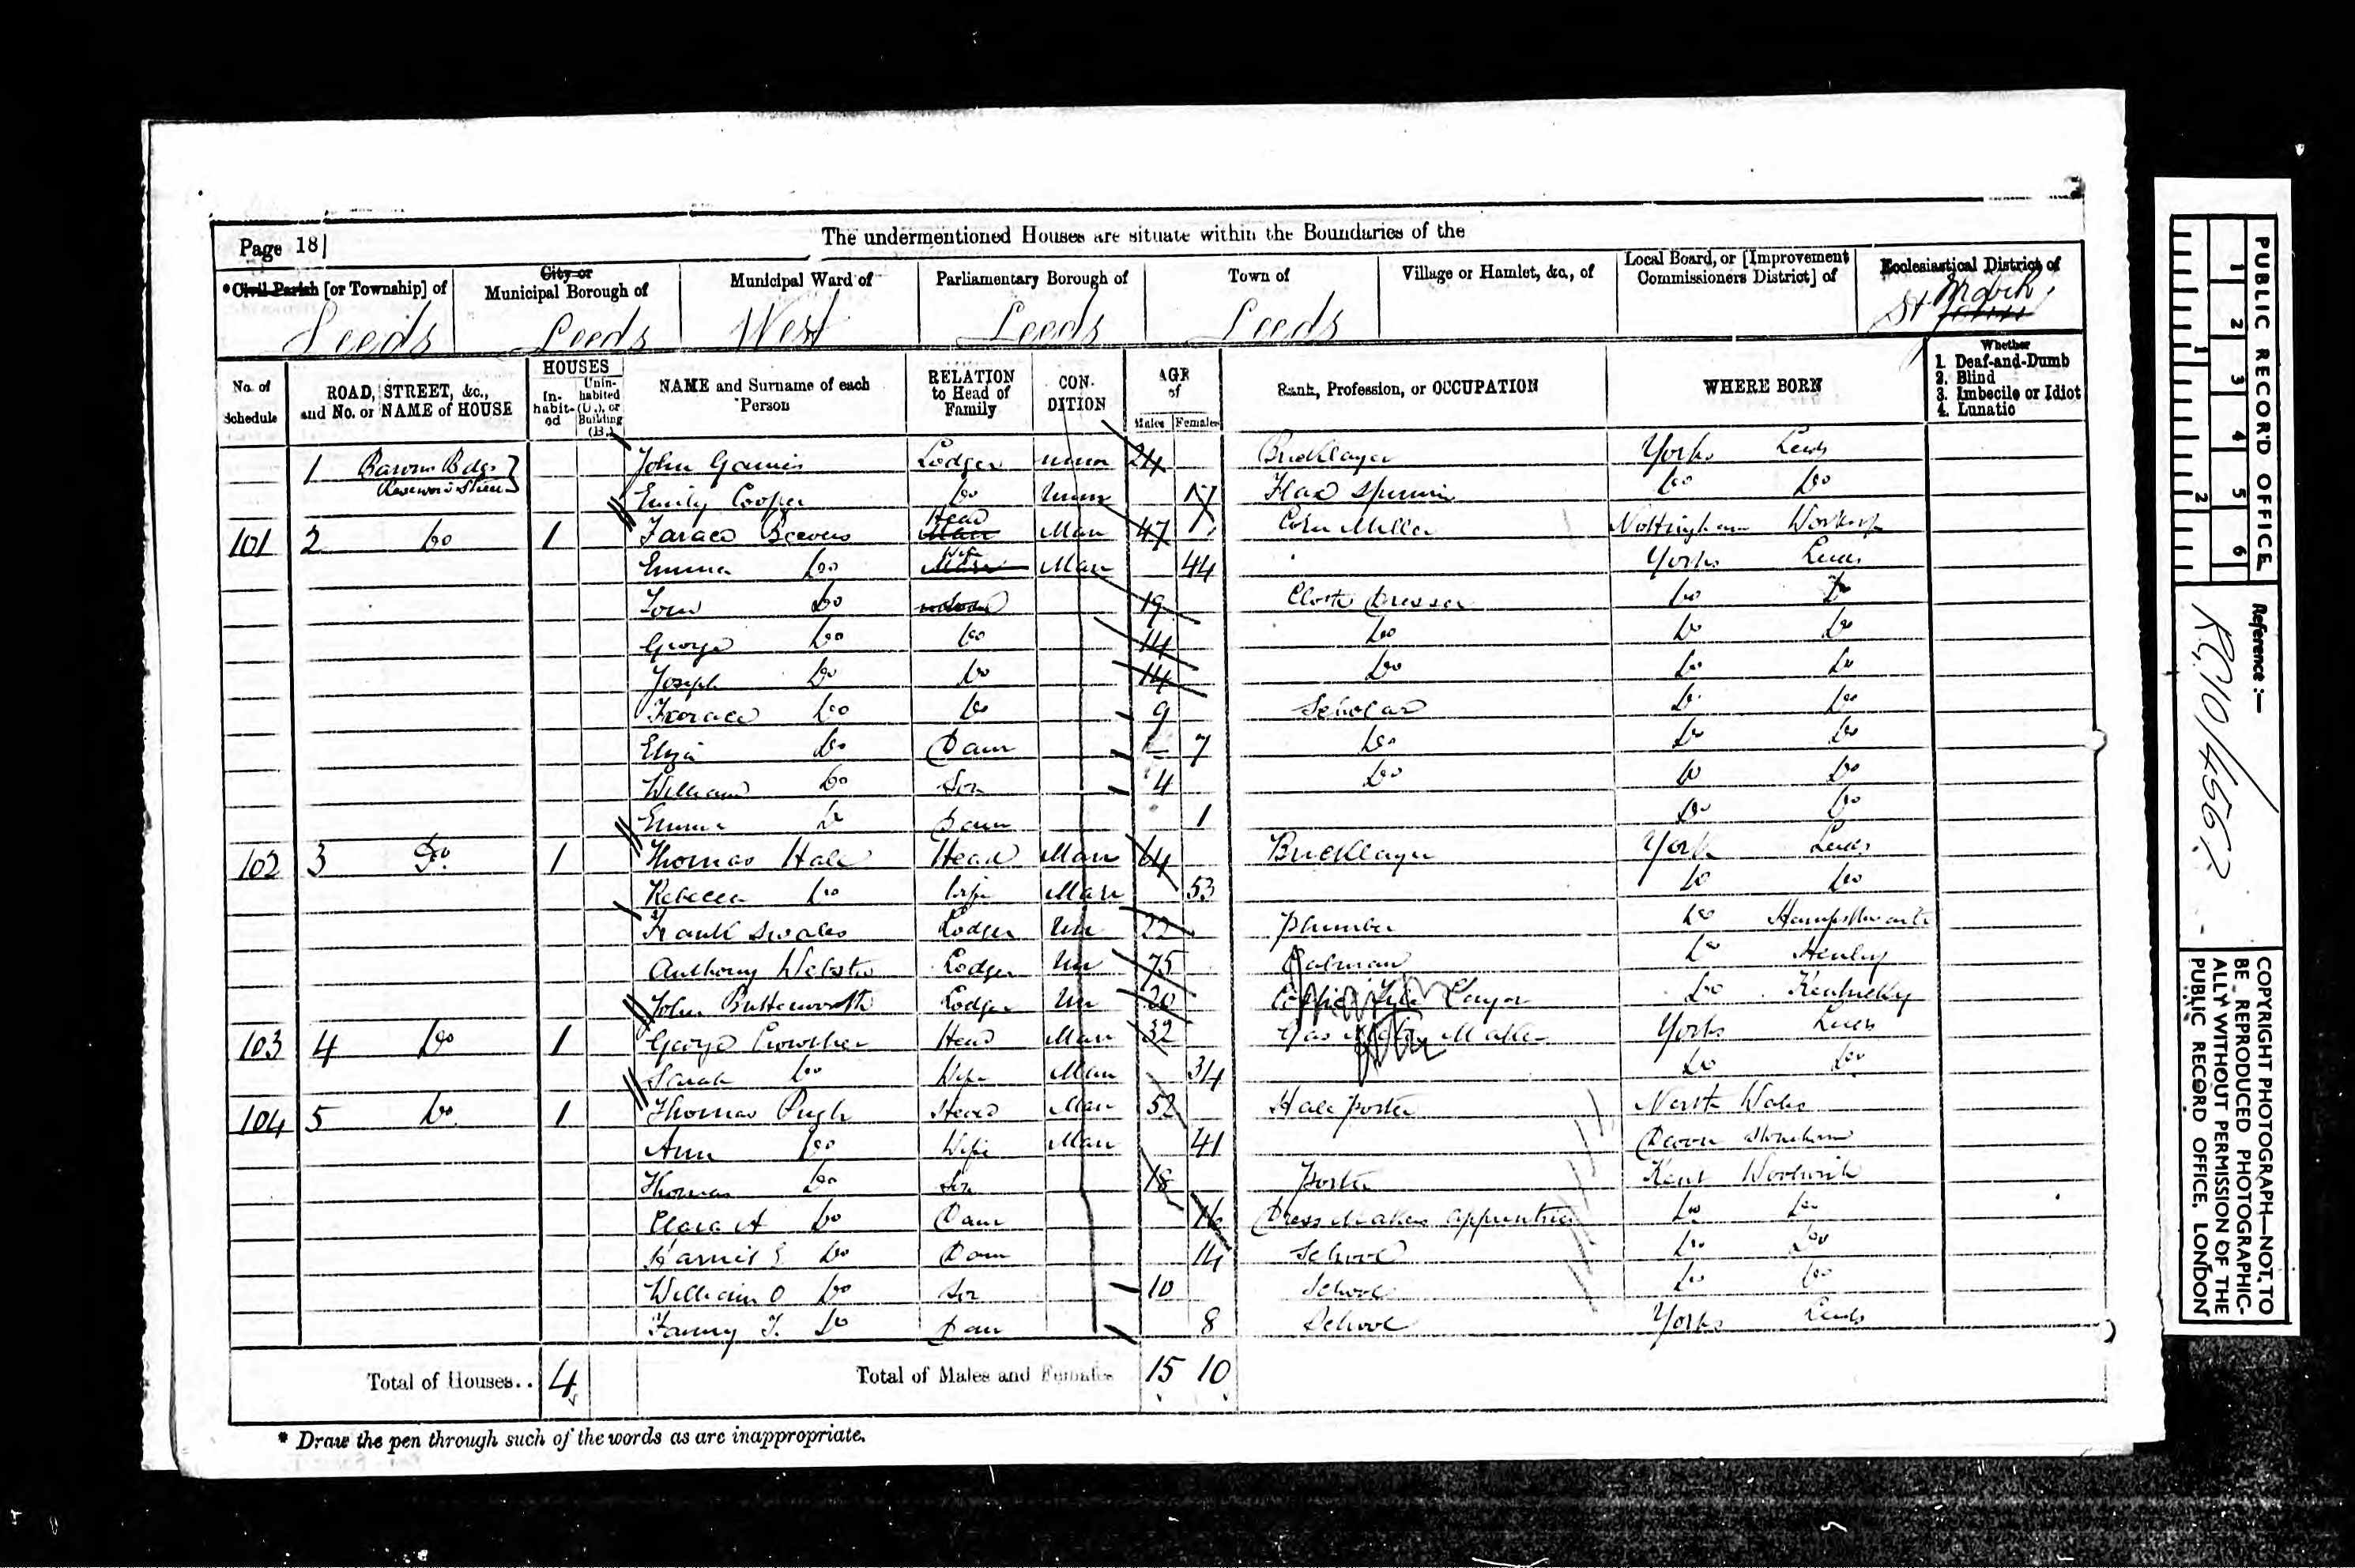 Page 18
The undermentioned Houses are situate within the Boundaries of the
*Civil Parish [or Township] of
City or Municipal Borough of
Municipal Ward of
Parliamentary Borough of
Town of
Village or Hamlet, &c., of
Local Board, or [Improvement Commissioners District] of
Ecclesiastical District of
Leeds Leeds West Leeds Leeds St Mark
No. of Schedule
ROAD, STREET, &c., and No. or NAME of HOUSE
HOUSES
In-habit-ed
Unin-habited (U.), or Building (B.)
NAME and Surname of each Person
RELATION to Head of Family
CON-DITION
AGE of
Males Females
Rank, Profession, or OCCUPATION
WHERE BORN
Whether
1. Deaf-and-Dumb
2. Blind
3. Imbecile or Idiot
4. Lunatic
1 John Lodger 24 Bricklayer Yorks Leeds
Emily Cooper Do 17 Flax Do Do
101 2 Do 1 Beevers Head Mar 47 Corn Miller Nottingham Worksop
Emma Do Wife Mar 44 Yorks Leeds
Tom Do 19 Cloth Dresser Do Do
George Do Do 14 Do Do Do
Joseph Do Do 14 Do Do Do
Horace Do Do 9 Scholar Do Do
Eliza Do Daur 7 Do Do Do
William Do Son 4 Do Do Do
Emma Do Daur 1 Do Do
102 3 Do 1 Thomas Hall Head Marr 64 Bricklayer York Leeds
Rebecca Do Wife Marr 53 Do Do
Frank Swales Lodger Un 22 Plumber Do Hampsthwaite
Anthony Webster Lodger Un 75 Do
John Butterworth Lodger Un 20 Do
103 4 Do 1 George Crowther Head Marr 32 Gas Maker Yorks Leeds
Sarah Do Wife Marr 34 Do Do
104 5 Do 1 Thomas Pugh Head Mar 52 Hall Porter North Wales
Ann Do Wife Marr 41 Devon
Thomas Do Son 18 Porter Kent Woolwich
Clara A Do Daur 16 Dress Makers Apprentice Do Do
E Do Daur 14 School Do Do
William O Do Son 10 School Do Do
Fanny T. Do Daur 8 School Yorks Leeds
Total of Houses.. 4
Total of Males and Females 15 10
* Draw the pen through such of the words as are inappropriate.
PUBLIC RECORD OFFICE
1 2 3 4 5 6
1 2
Reference :—
R.G. 10/4562
COPYRIGHT PHOTOGRAPH—NOT TO
BE REPRODUCED PHOTOGRAPHIC-
ALLY WITHOUT PERMISSION OF THE
PUBLIC RECORD OFFICE, LONDON